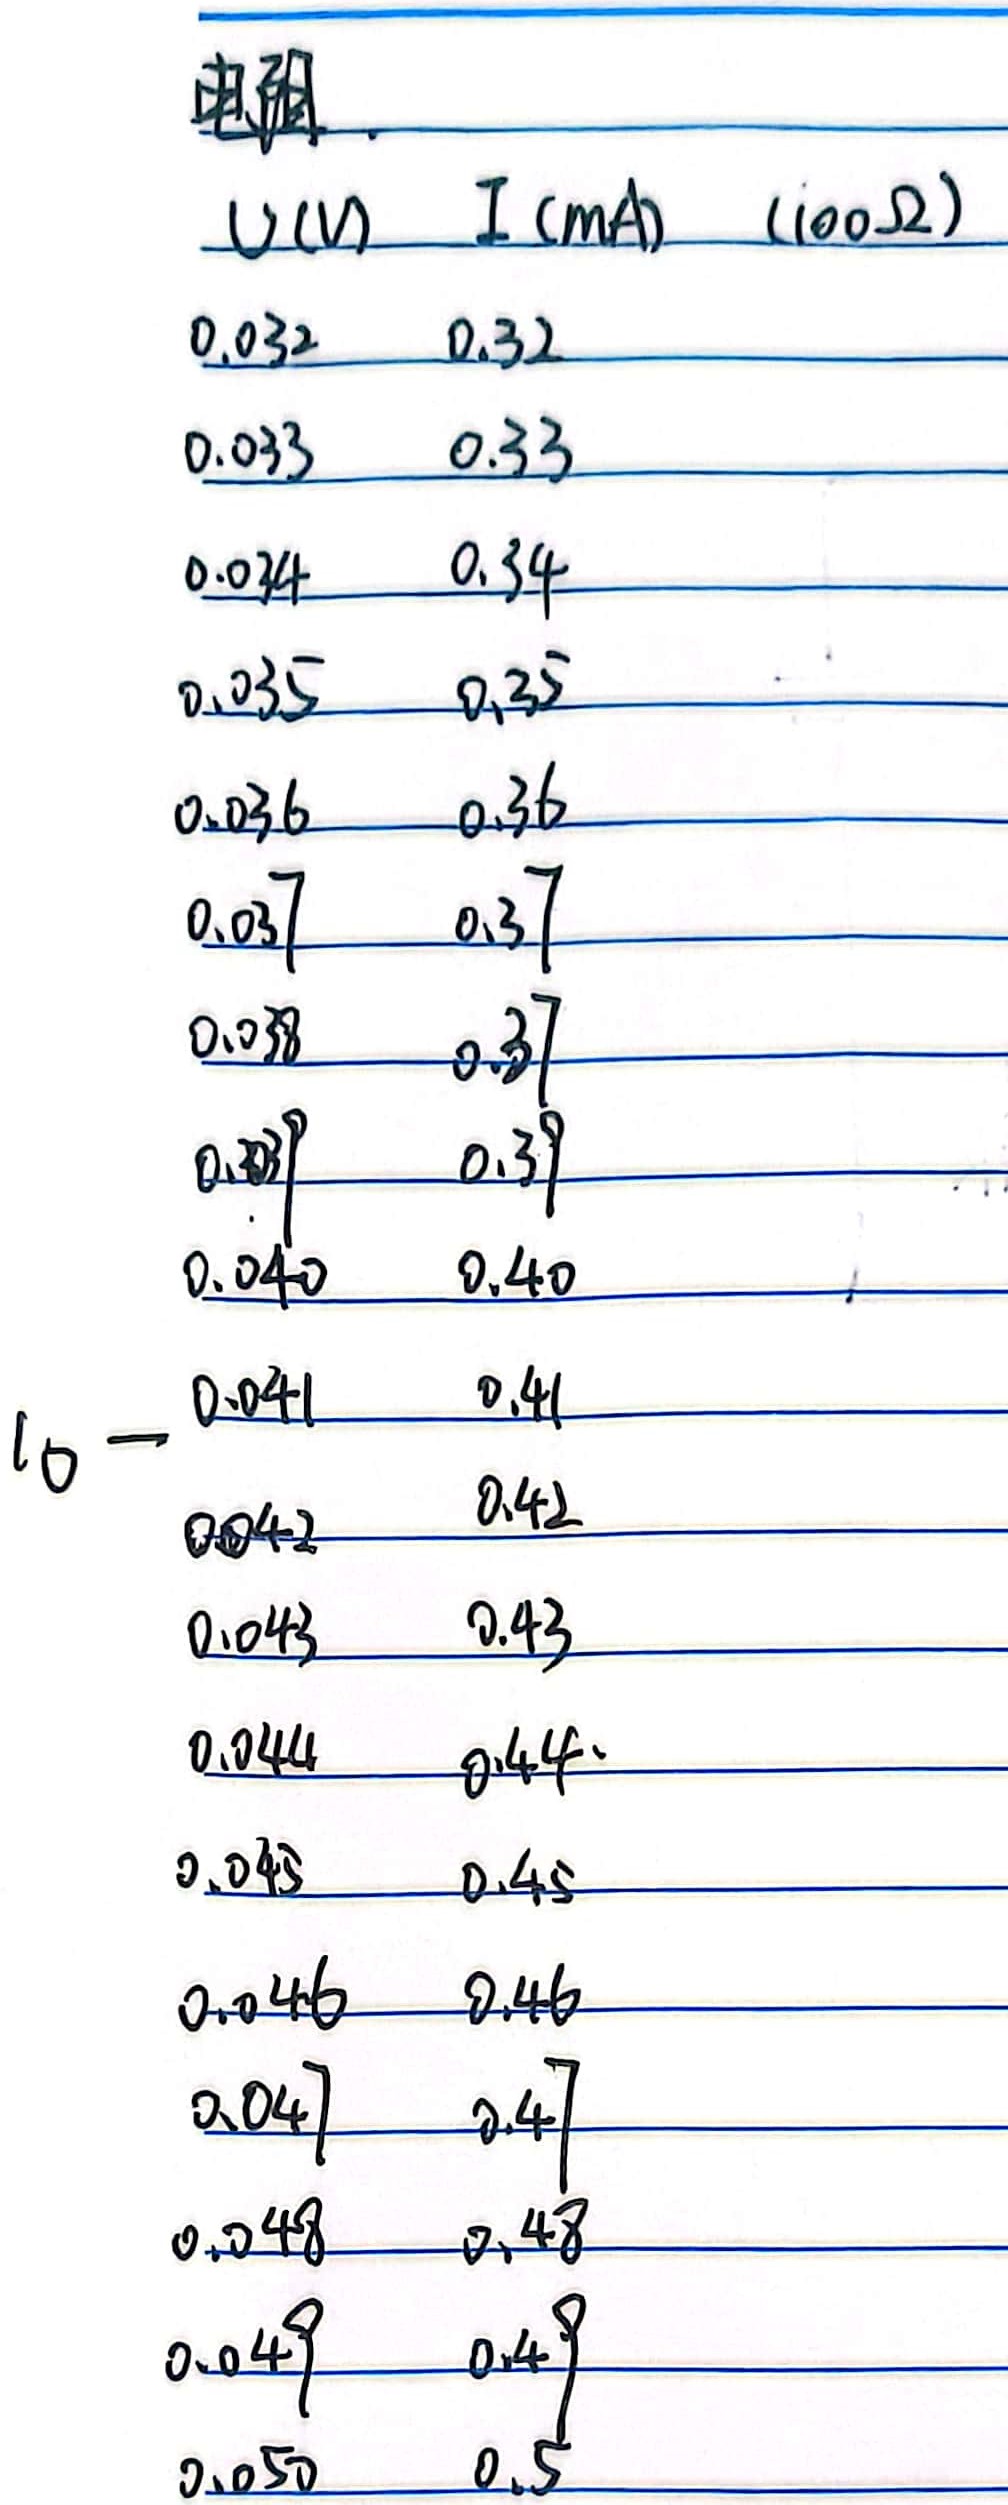 电阻.
U(V) I(mA) (100Ω)
0.032 0.32
0.033 0.33
0.034 0.34
0.035 0.35
0.036 0.36
0.037 0.37
0.038 0.37
0.039 0.39
0.040 0.40
10 — 0.041 0.41
0.042 0.42
0.043 0.43
0.044 0.44.
0.045 0.45
0.046 0.46
0.047 0.47
0.048 0.48
0.049 0.49
0.050 0.5